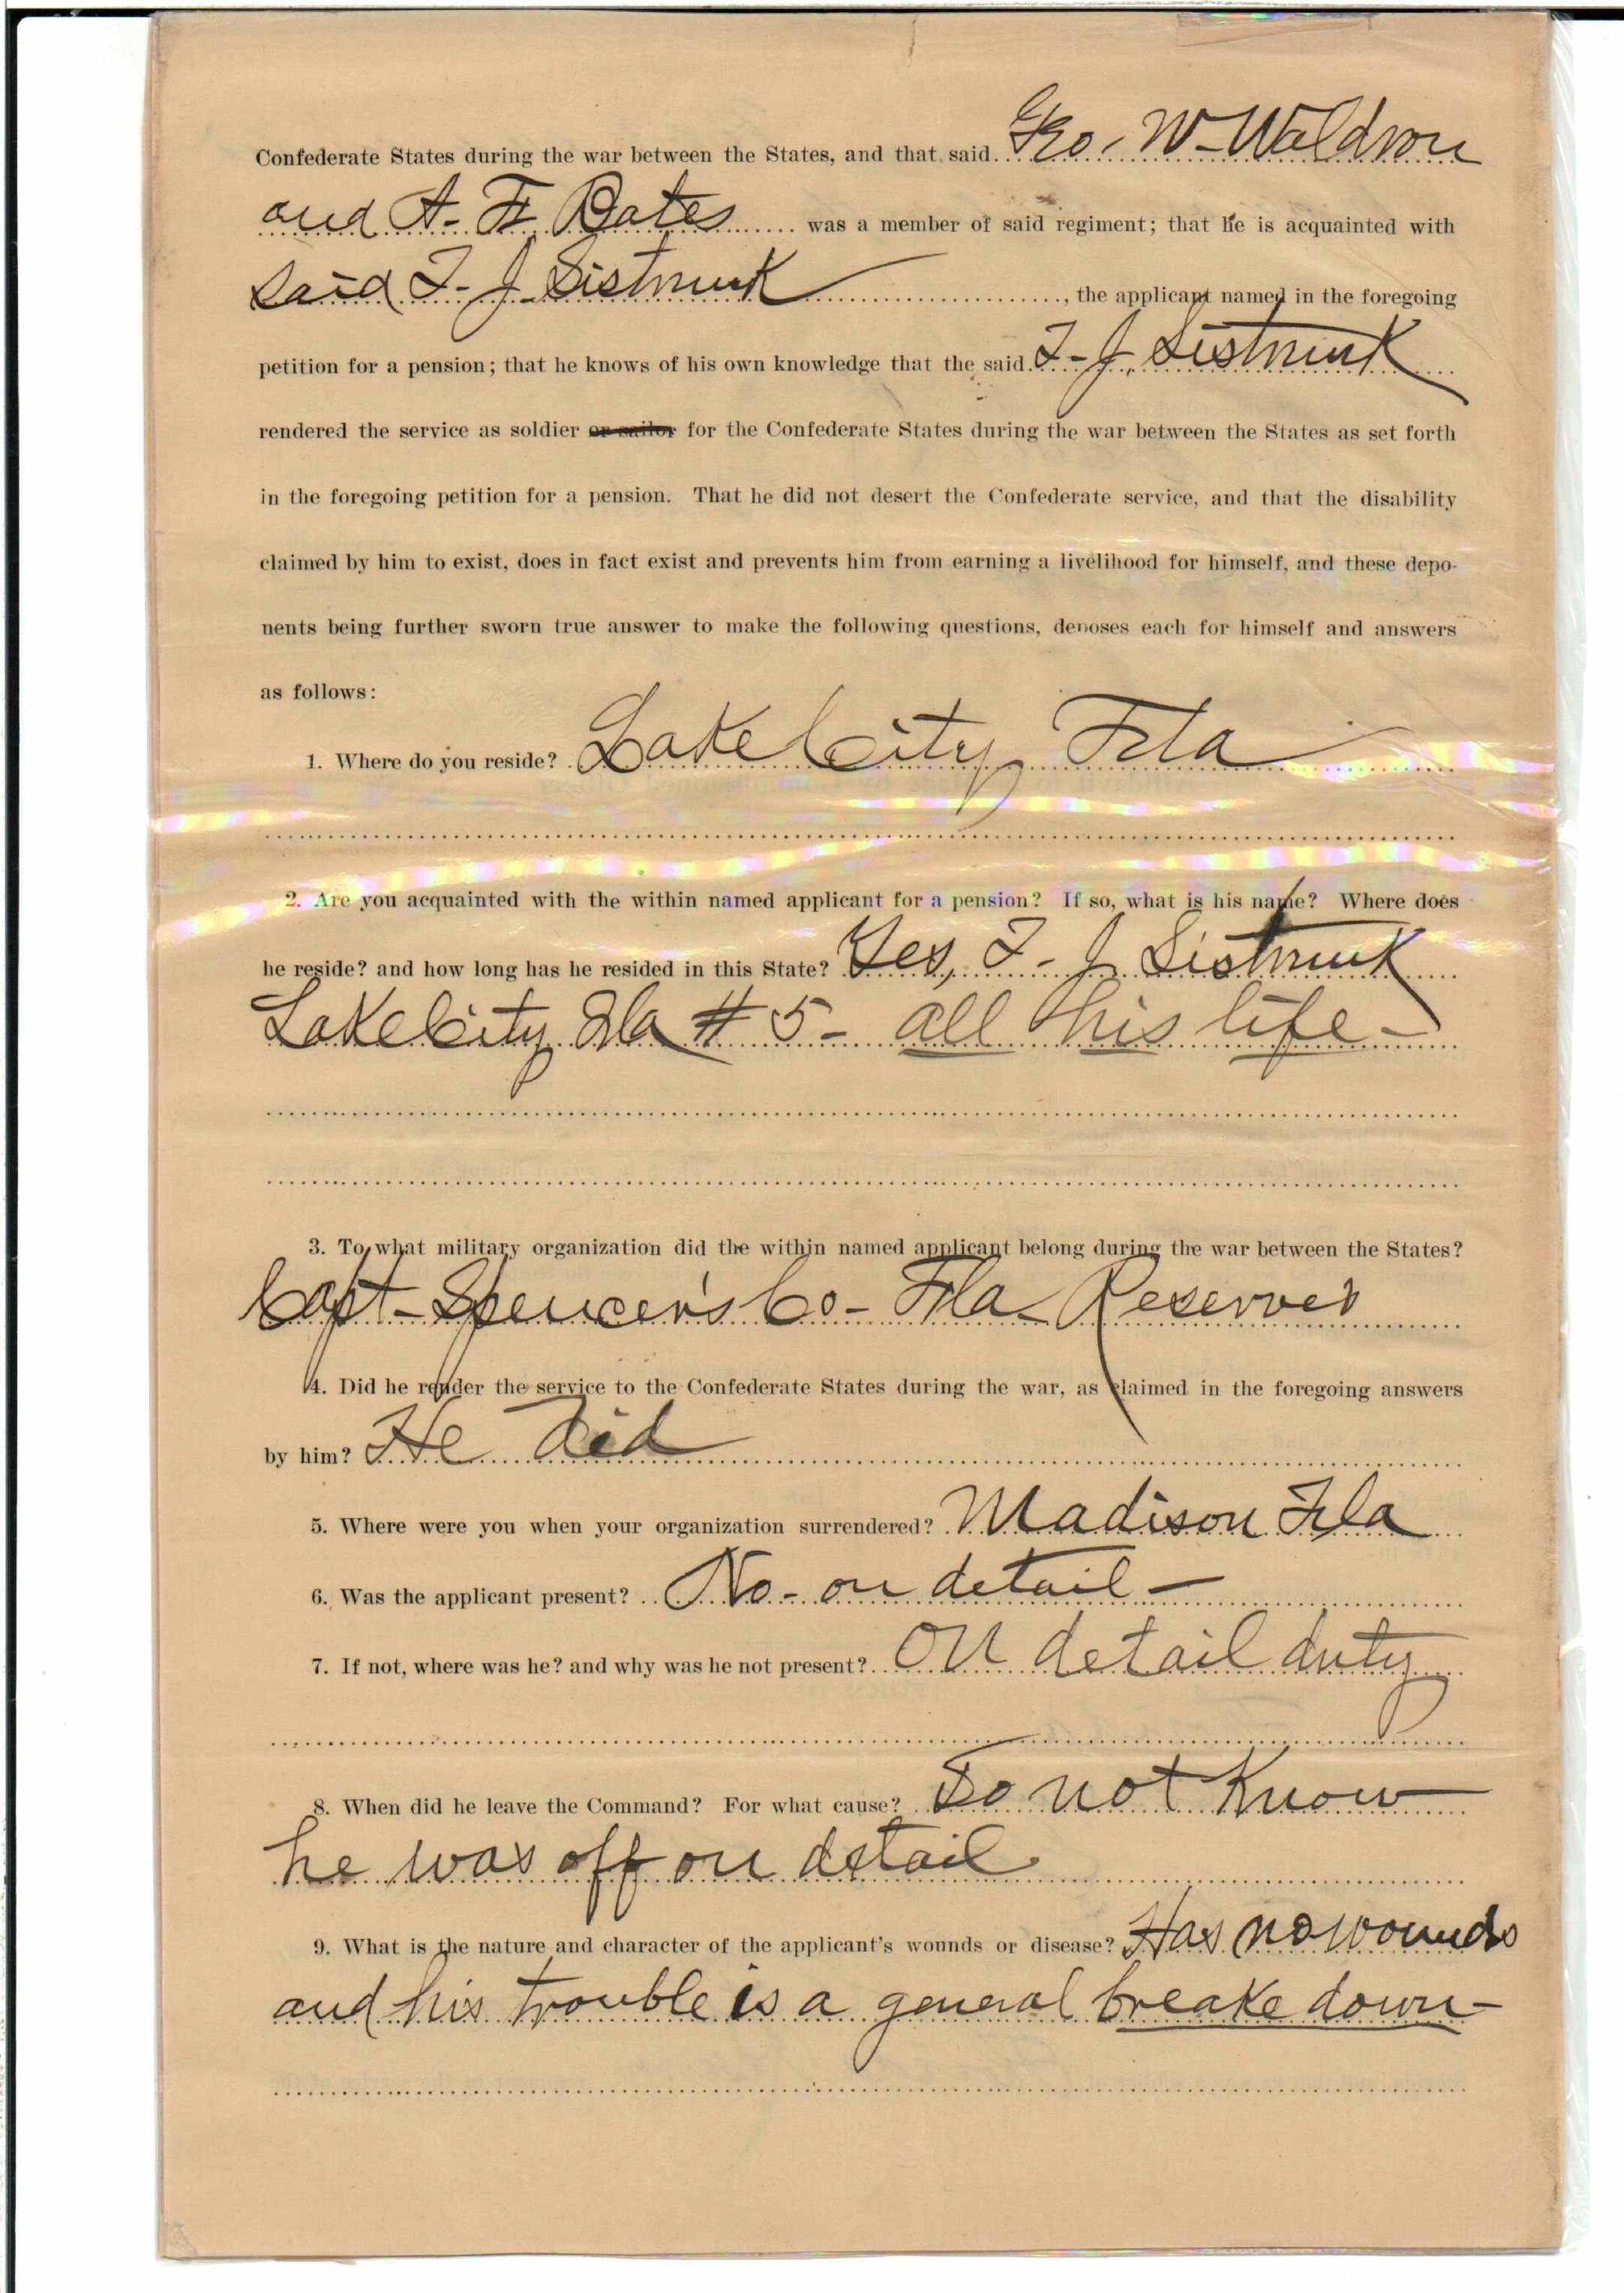 Confederate States during the war between the States, and that said Geo. W. Waldron
and A. F. Bates was a member of said regiment; that he is acquainted with
said T. J. Sistrunk, the applicant named in the foregoing
petition for a pension; that he knows of his own knowledge that the said T. J. Sistrunk
rendered the service as soldier or sailor for the Confederate States during the war between the States as set forth
in the foregoing petition for a pension. That he did not desert the Confederate service, and that the disability
claimed by him to exist, does in fact exist and prevents him from earning a livelihood for himself, and these depo-
nents being further sworn true answer to make the following questions, deposes each for himself and answers
as follows:
1. Where do you reside? Lake City Fla
2. Are you acquainted with the within named applicant for a pension? If so, what is his name? Where does
he reside? and how long has he resided in this State? Yes, T. J. Sistrunk
Lake City Fla # 5 - all his life -
3. To what military organization did the within named applicant belong during the war between the States?
Capt - Spencer's Co - Fla Reserves
4. Did he render the service to the Confederate States during the war, as claimed in the foregoing answers
by him? He did
5. Where were you when your organization surrendered? Madison Fla
6. Was the applicant present? No - on detail -
7. If not, where was he? and why was he not present? On detail duty
8. When did he leave the Command? For what cause? Do not Know
he was off on detail
9. What is the nature and character of the applicant's wounds or disease? Has no wounds
and his trouble is a general breake down -